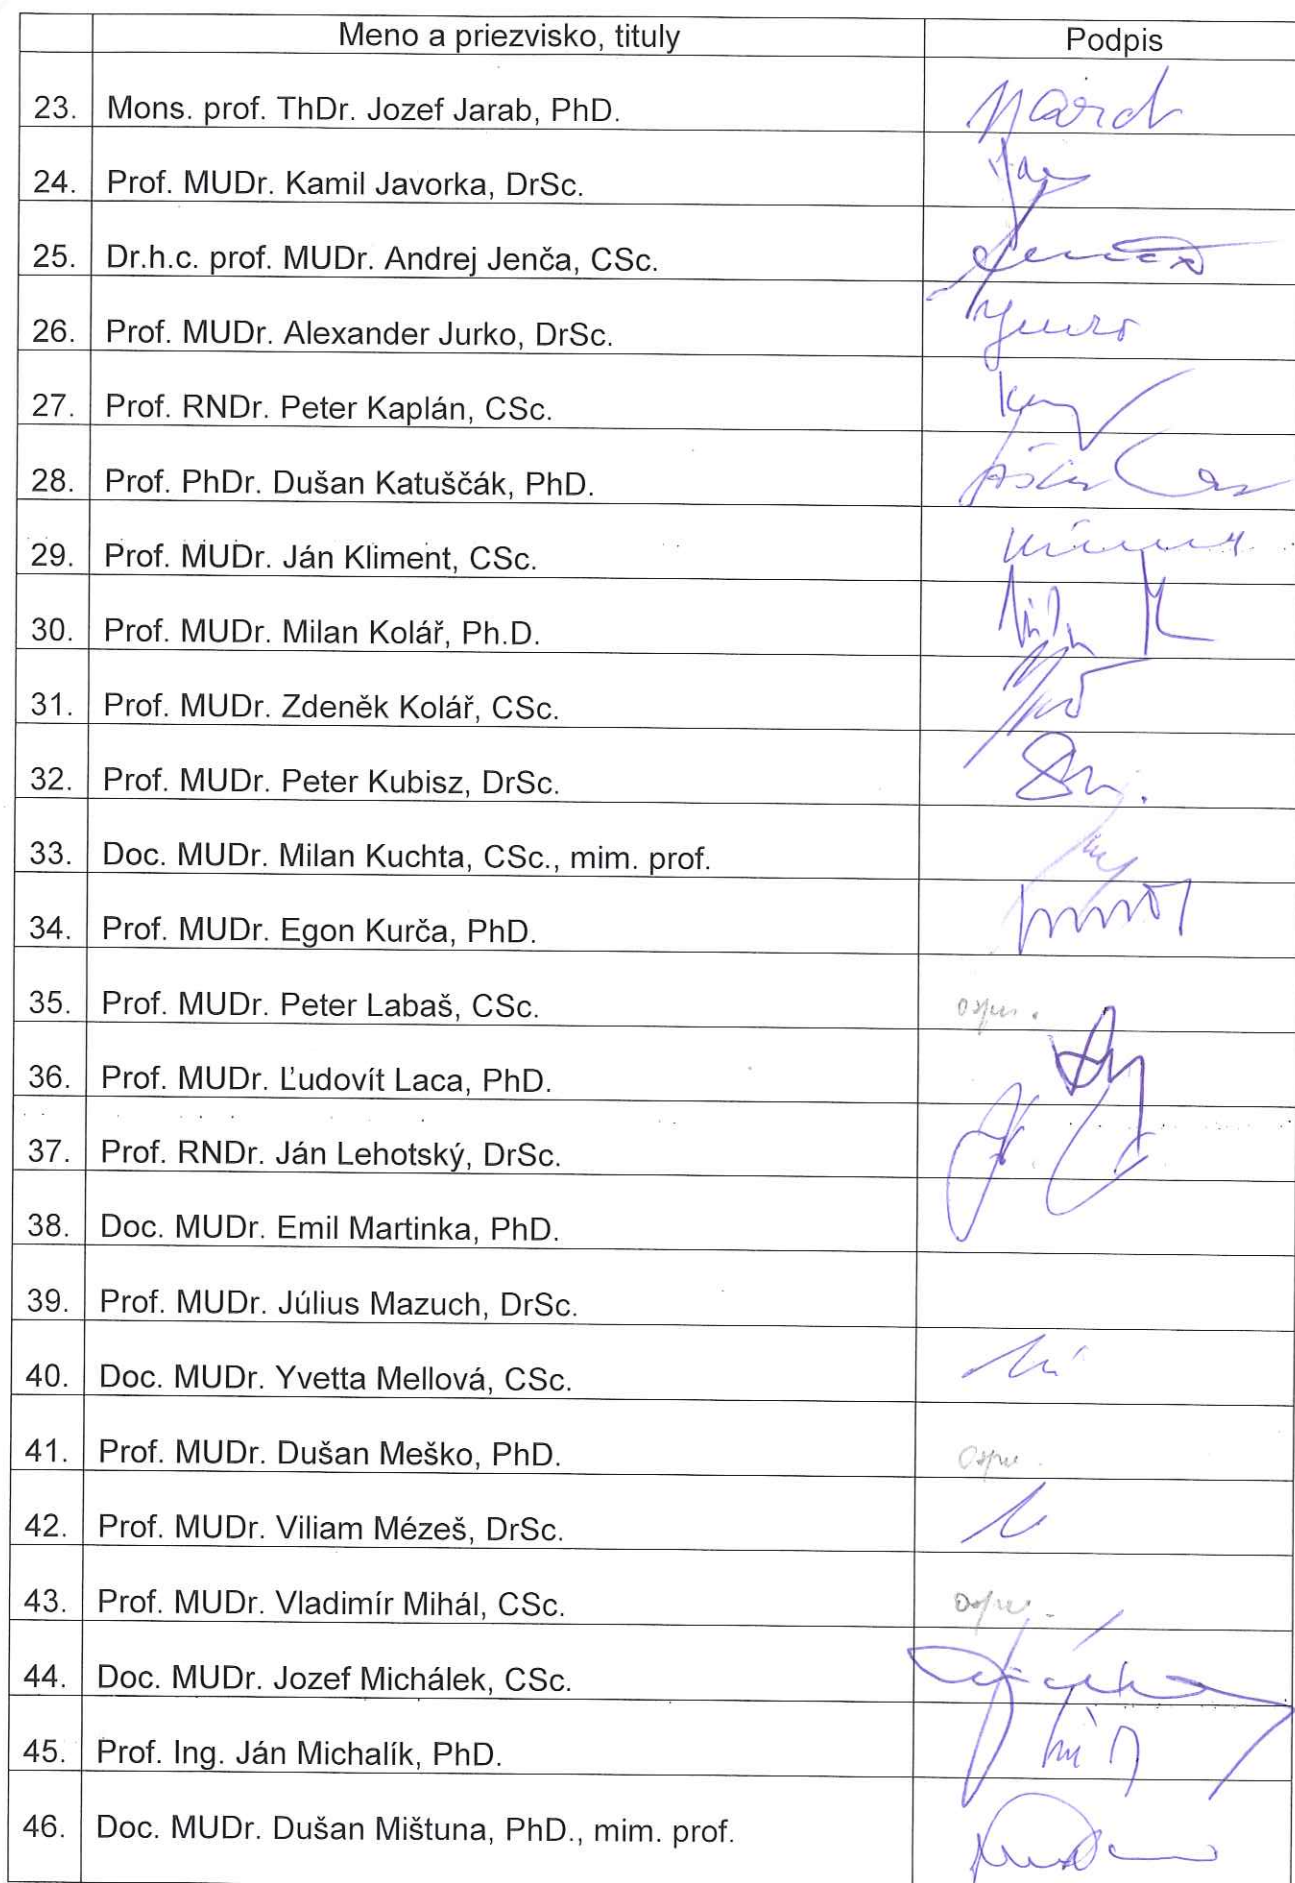 Meno a priezvisko, tituly Podpis
23. Mons. prof. ThDr. Jozef Jarab, PhD.
24. Prof. MUDr. Kamil Javorka, DrSc.
25. Dr.h.c. prof. MUDr. Andrej Jenča, CSc.
26. Prof. MUDr. Alexander Jurko, DrSc.
27. Prof. RNDr. Peter Kaplán, CSc.
28. Prof. PhDr. Dušan Katuščák, PhD.
29. Prof. MUDr. Ján Kliment, CSc.
30. Prof. MUDr. Milan Kolář, Ph.D.
31. Prof. MUDr. Zdeněk Kolář, CSc.
32. Prof. MUDr. Peter Kubisz, DrSc.
33. Doc. MUDr. Milan Kuchta, CSc., mim. prof.
34. Prof. MUDr. Egon Kurča, PhD.
35. Prof. MUDr. Peter Labaš, CSc.
36. Prof. MUDr. Ľudovít Laca, PhD.
37. Prof. RNDr. Ján Lehotský, DrSc.
38. Doc. MUDr. Emil Martinka, PhD.
39. Prof. MUDr. Július Mazuch, DrSc.
40. Doc. MUDr. Yvetta Mellová, CSc.
41. Prof. MUDr. Dušan Meško, PhD.
42. Prof. MUDr. Viliam Mézeš, DrSc.
43. Prof. MUDr. Vladimír Mihál, CSc.
44. Doc. MUDr. Jozef Michálek, CSc.
45. Prof. Ing. Ján Michalík, PhD.
46. Doc. MUDr. Dušan Mištuna, PhD., mim. prof.